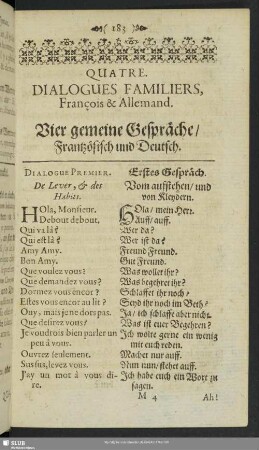 ( 183 )
QUATRE
DIALOGUES FAMILIERS,
François & Allemand.
Vier gemeine Gespräche/
Frantzösisch und Deutsch.
DIALOGUE PREMIER.
De Lever, & des
Habits.
HOla, Monsieur.
Debout debout.
Qui va là?
Qui est là?
Amy Amy.
Bon Amy.
Que voulez vous?
Que demandez vous?
Dormez vous encor?
Estes vous encor au lit?
Ouy, mais je ne dors pas.
Que desirez vous?
Je voudrois bien parler un
peu à vous.
Ouvrez seulement.
Sus sus, levez vous.
J'ay un mot à vous di-
re.
Erstes Gespräch.
Vom auffstehen/ und
von Kleydern.
HOla/ mein Herr.
Auff/ auff.
Wer da?
Wer ist da?
Freund Freund.
Gut Freund.
Was wollet ihr?
Was begehret ihr?
Schlaffet ihr noch?
Seyd ihr noch im Beth?
Ja/ ich schlaffe aber nicht.
Was ist euer Begehren?
Ich wolte gerne ein wenig
mit euch reden.
Machet nur auff.
Nun nun/ stehet auff.
Ich habe euch ein Wort zu
sagen.
M 4
Ah!
SLUB